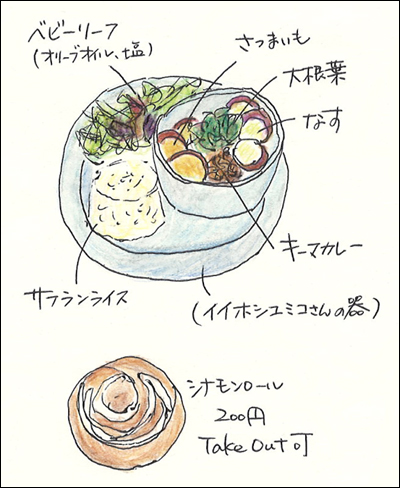 ベビーリーフ
(オリーブオイル、塩)
さつまいも
大根葉
なす
キーマカレー
サフランライス
(イイホシユミコさんの器)
シナモンロール
200円
Take Out 可